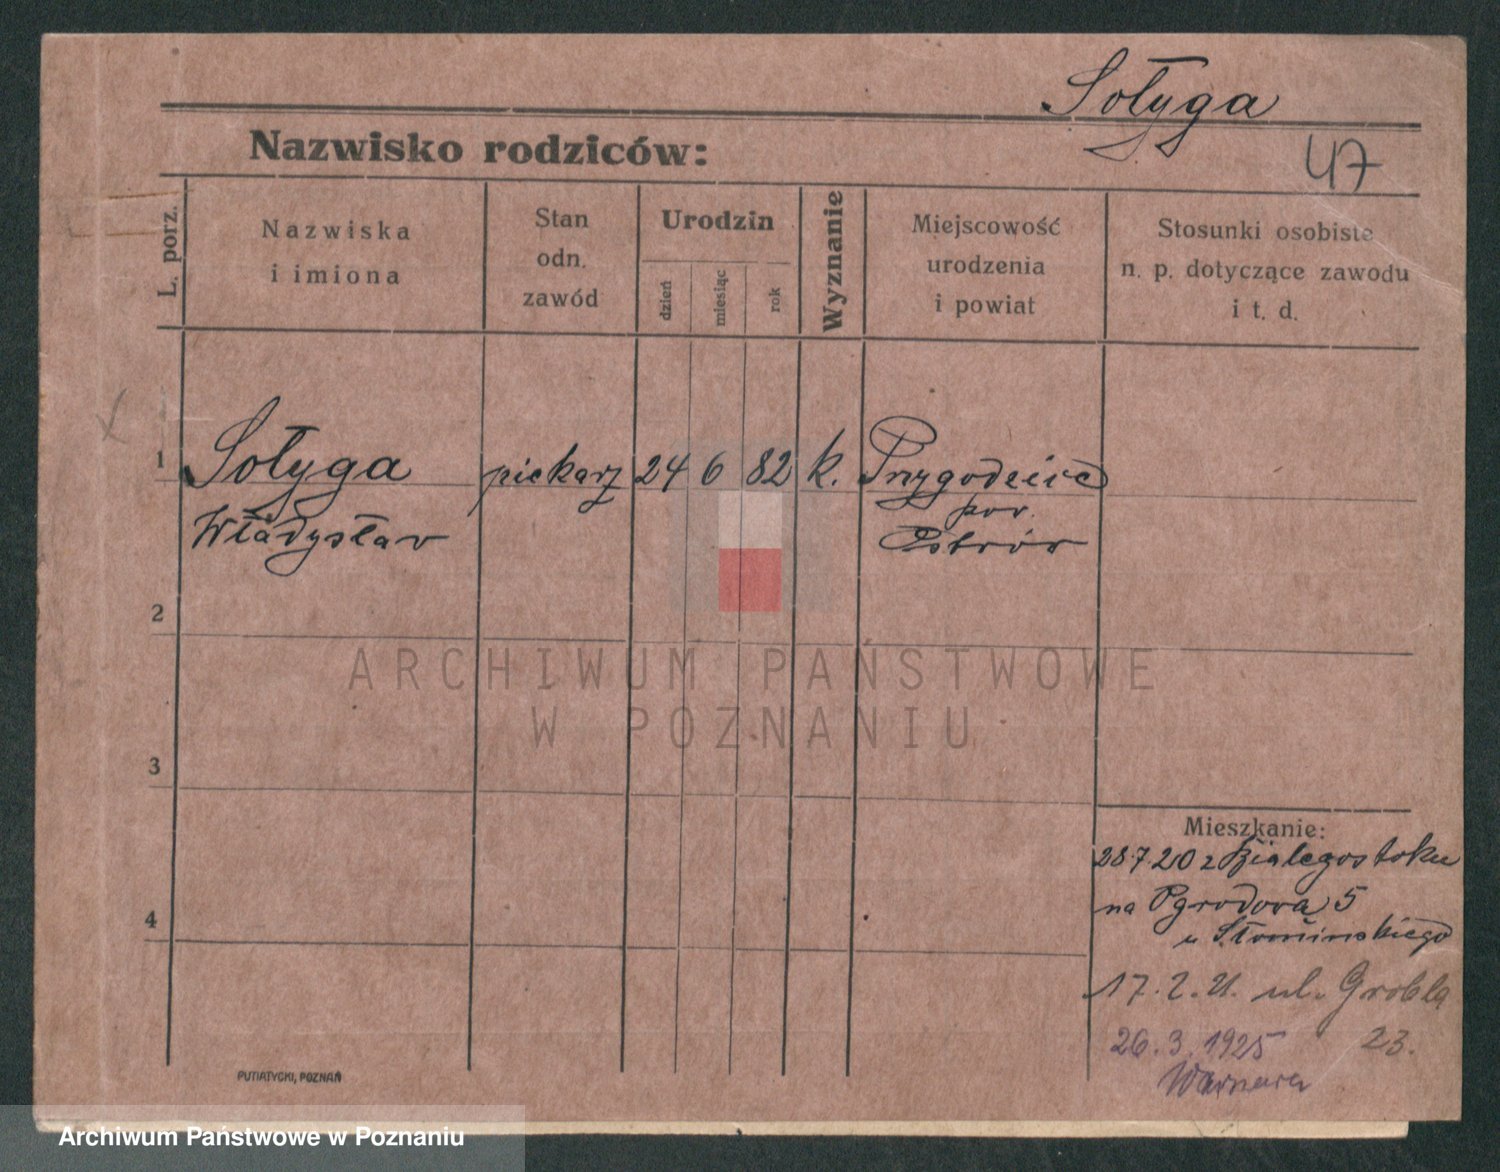 Sołyga
Nazwisko rodziców:
47
L. porz.
Nazwiska
i imiona
Stan
odn.
zawód
Urodzin
dzień
miesiąc
rok
Wyznanie
Miejscowość
urodzenia
i powiat
Stosunki osobiste
n. p. dotyczące zawodu
i t. d.
1
Sołyga
Władysław
piekarz
24
6
82
k.
Przygodzice
pow.
Ostrów
2
3
4
Mieszkanie:
28.7.20 z Białegostoku
na Ogrodowa 5
u Słomińskiego
17. 2. 21. ul. Grobla
23.
26.3.1925
PUTIATYCKI, POZNAŃ
ARCHIWUM PAŃSTWOWE
W POZNANIU
Archiwum Państwowe w Poznaniu